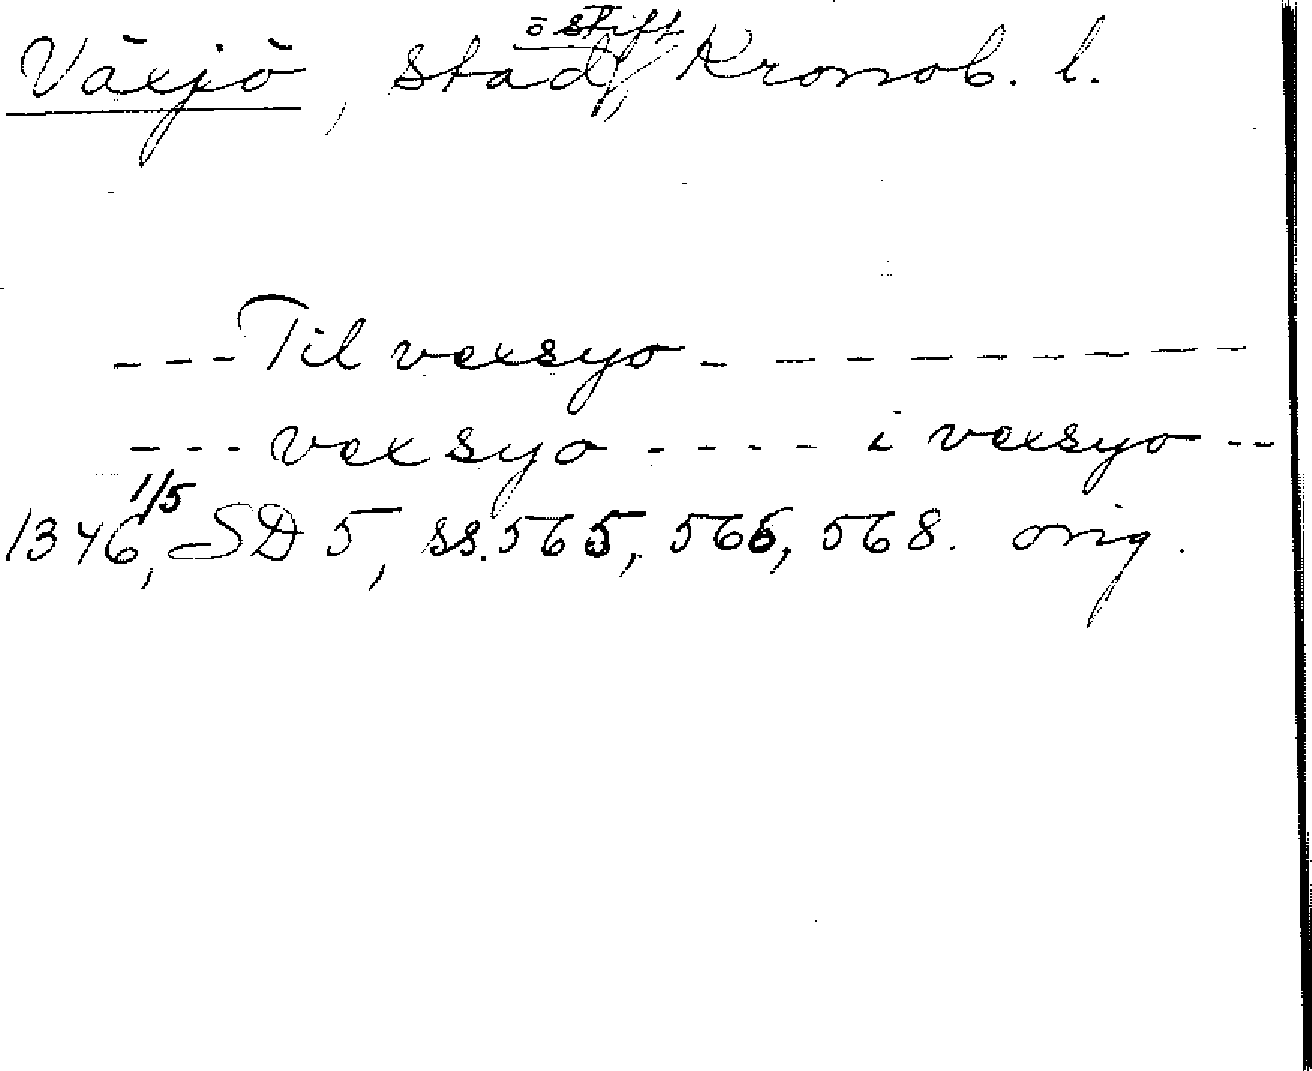 Växjö, stad, ö stift, Kronob. l.
--- Til vexsyo - - - - - - - - -
--- vexsyo - - - - i vexsyo --
1346 1/5, SD 5, ss. 565, 566, 568. orig.